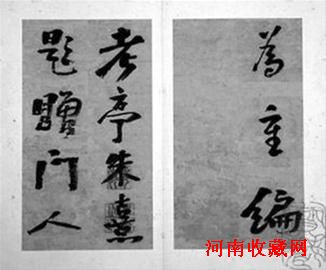 為重編
考亭朱熹
題贈門人
河南收藏网